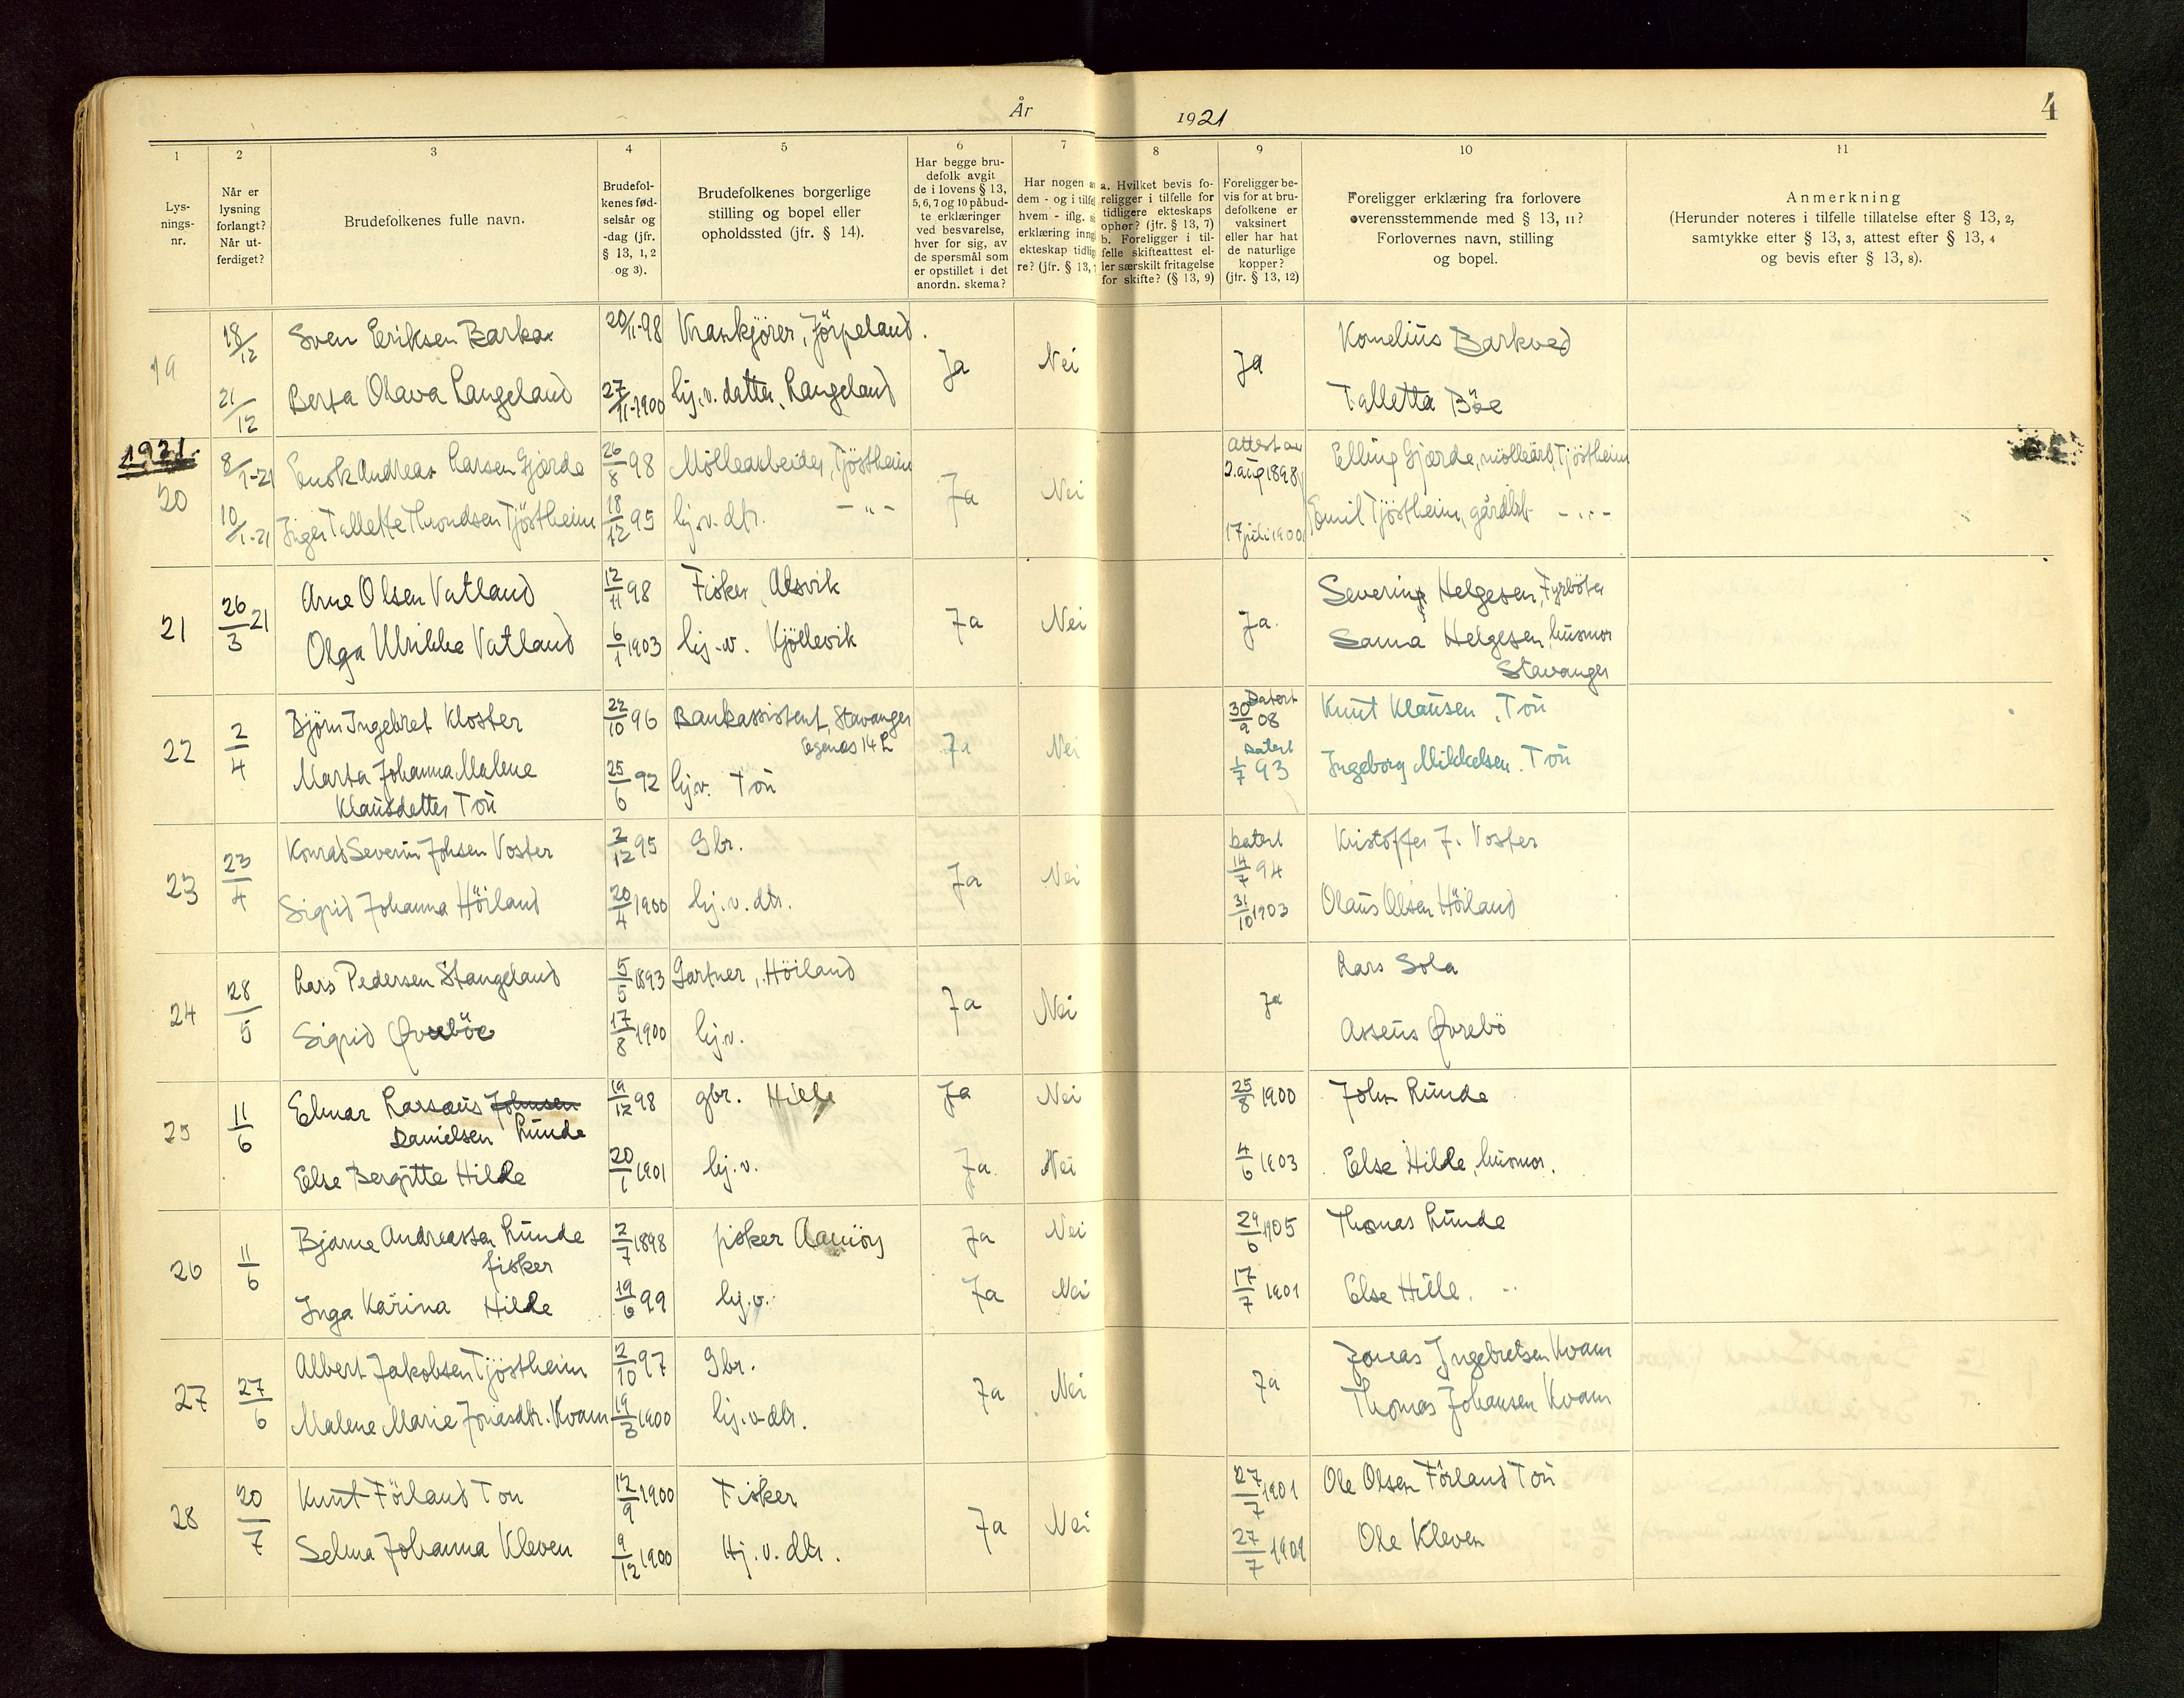 År 1921 4
1 2 3 4 5 6 7 8 9 10 11
Lys-
nings-
nr.
Når er
lysning
forlangt?
Når ut-
ferdiget?
Brudefolkenes fulle navn.
Brudefol-
kenes fød-
selsår og
-dag (jfr.
§ 13, 1, 2
og 3).
Brudefolkenes borgerlige
stilling og bopel eller
opholdssted (jfr. § 14).
Har begge bru-
defolk avgit
de i lovens § 13,
5, 6, 7 og 10 påbud-
te erklæringer
ved besvarelse,
hver for sig, av
de spørsmål som
er opstillet i det
anordn. skema?
Har nogen a
dem - og i tilfe
hvem - iflg. si
erklæring inng
ekteskap tidlig
re? (jfr. § 13, 7
a. Hvilket bevis fo-
religger i tilfelle for
tidligere ekteskaps
ophør? (jfr. § 13, 7)
b. Foreligger i til-
felle skifteattest el-
ler særskilt fritagelse
for skifte? (§ 13, 9)
Foreligger be-
vis for at bru-
defolkene er
vaksinert
eller har hat
de naturlige
kopper?
(jfr. § 13, 12)
Foreligger erklæring fra forlovere
overensstemmende med § 13, 11?
Forlovernes navn, stilling
og bopel.
Anmerkning
(Herunder noteres i tilfelle tillatelse efter § 13, 2,
samtykke efter § 13, 3, attest efter § 13, 4
og bevis efter § 13, 8).
19 18/12 Sven Eriksen Barka 20/11-98 Krankjører, Jörpeland. Ja Nei Ja Kornelius Barkved
21/12 Berta Olava Langeland 27/11-1900 hj.v. datter, Langeland Talletta Böe
1921.
20 8/1-21 Enok Andreas Larsen Gjærde 26/8 98 Möllearbeider, Tjöstheim Ja Nei Attest av 2. aug 1898 Elling Gjærde, möllearb, Tjöstheim
10/1-21 Inger Tallette Throndsen Tjöstheim 18/12 95 hj.v. dtr. - " - 17 juli 1900 Emil Tjöstheim, gårdbr. - " -
21 26/3 21 Arne Olsen Vatland 12/11 98 Fisker, Alsvik Ja Nei Ja. Severin Helgesen, Fyrböter
Olga Ulrikke Vatland 6/1 1903 hj.v. Kjöllevik Sama Helgesen, husmor
Stavanger
22 2/4 Björn Ingebret Kloster 22/10 96 Bankassistent, Stavanger Ja Nei Datert 30/9 08 Knut Klausen, Tou
Egenæs 14 L
Marta Johanna Malene 25/6 92 hj.v. Tou Datert 1/7 93 Ingeborg Mikkelsen. Tou
Klausdatter Tou
23 23/4 Konrad Severin Johsen Voster 2/12 95 Gbr. Ja Nei Datert 14/7 94 Kristoffer J. Voster
Sigrid Johanna Höiland 20/4 1900 hj.v. dtr. 31/10 1903 Olaus Olsen Höiland
24 28/5 Lars Pedersen Stangeland 5/5 1893 Gartner, Höiland Ja Nei Ja Lars Sola
Sigrid Øvreböe 17/8 1900 hj.v. Asseus Øvrebö
25 11/6 Elmar Larsæus Johnsen 19/12 98 gbr. Hille Ja Nei 25/8 1900 John Lunde
Danielsen Lunde
Else Bergitte Hilde 20/1 1901 hj.v. Ja. Nei 4/6 1903 Else Hilde, husmor.
26 11/6 Bjarne Andreassen Lunde 2/7 1898 fisker Aamöy Ja Nei 29/6 1905 Thomas Lunde
fisker
Inga Karina Hilde 19/6 99 hj.v. Ja Nei 17/7 1901 Else Hille. "
27 27/6 Albert Jakobsen Tjöstheim 2/10 97 Gbr. Ja Nei Ja Jonas Ingebretsen Kvam
Malene Marie Jonasdtr. Kvam 19/3 1900 hj.v. dtr. Thomas Johansen Kvam
28 20/7 Knut Förland Tou 12/9 1900 Fisker Ja Nei 27/7 1901 Ole Olsen Förland Tou
Selma Johanna Kleven 9/12 1900 Hj.v. dtr. 27/7 1901 Ole Kleven